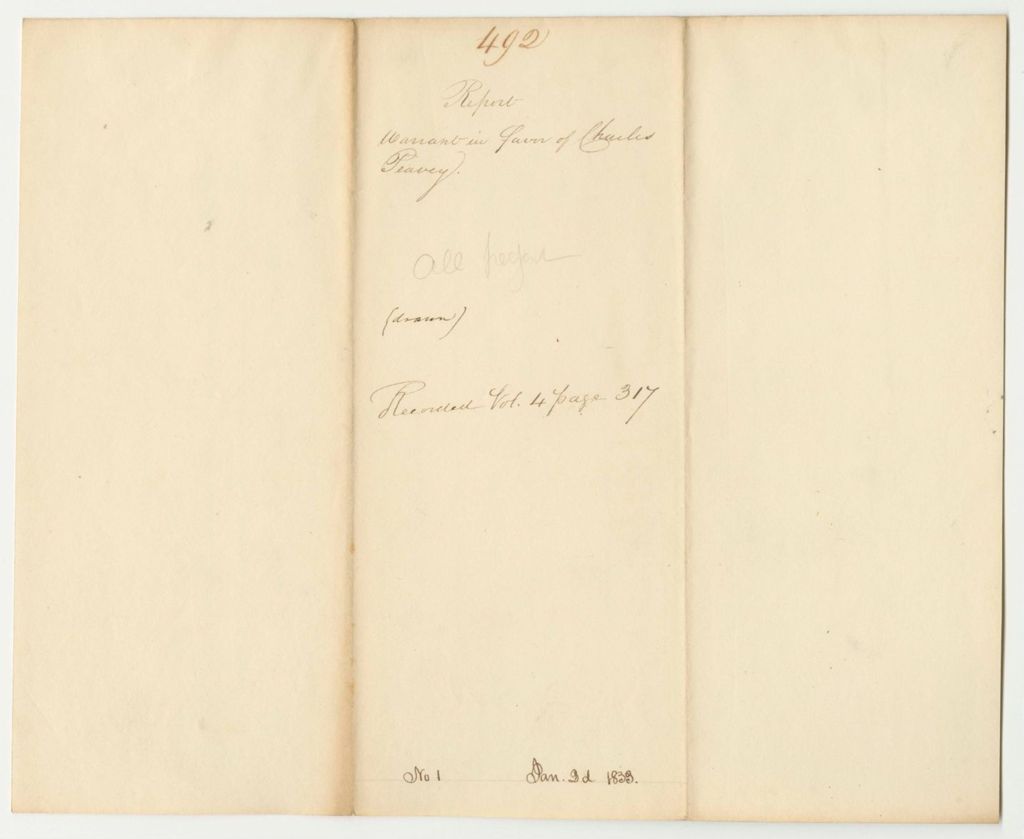 492
Report
Warrant in favor of Charles
Peavey.
All present
(drawn)
Recorded Vol. 4 page 317
No 1 Jan. 2d 1833.